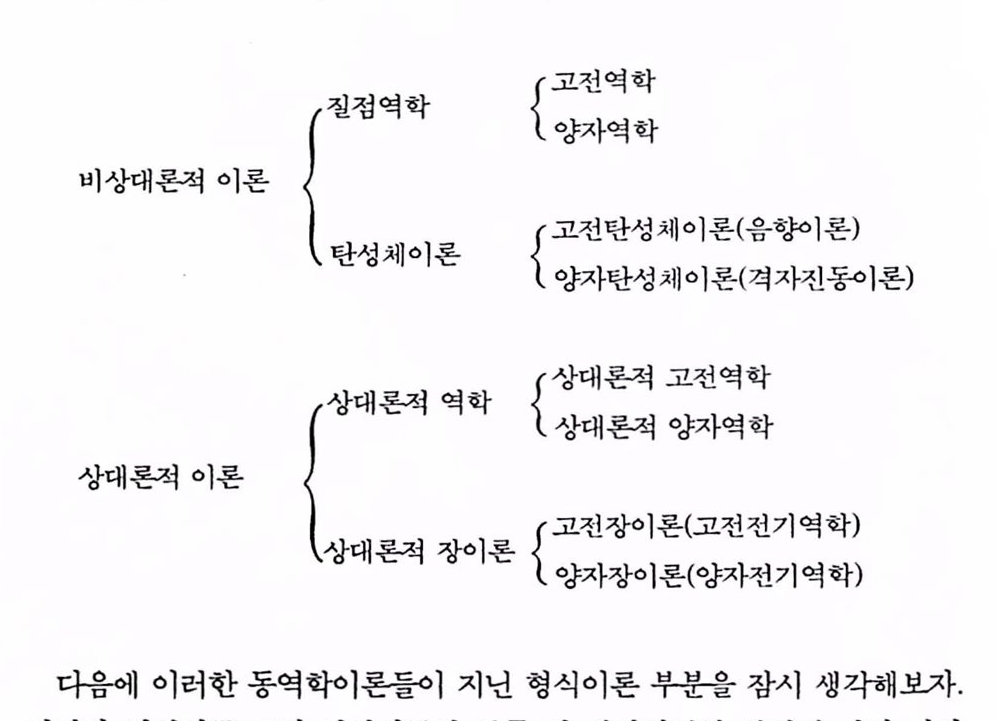 고전역학
질점역학
양자역학
비상대론적 이론
고전탄성체이론(음향이론)
탄성체이론
양자탄성체이론(격자진동이론)
상대론적 고전역학
상대론적 역학
상대론적 양자역학
상대론적 이론
고전장이론(고전전기역학)
상대론적 장이론
양자장이론(양자전기역학)
다음에 이러한 동역학이론들이 지닌 형식이론 부분을 잠시 생각해보자.